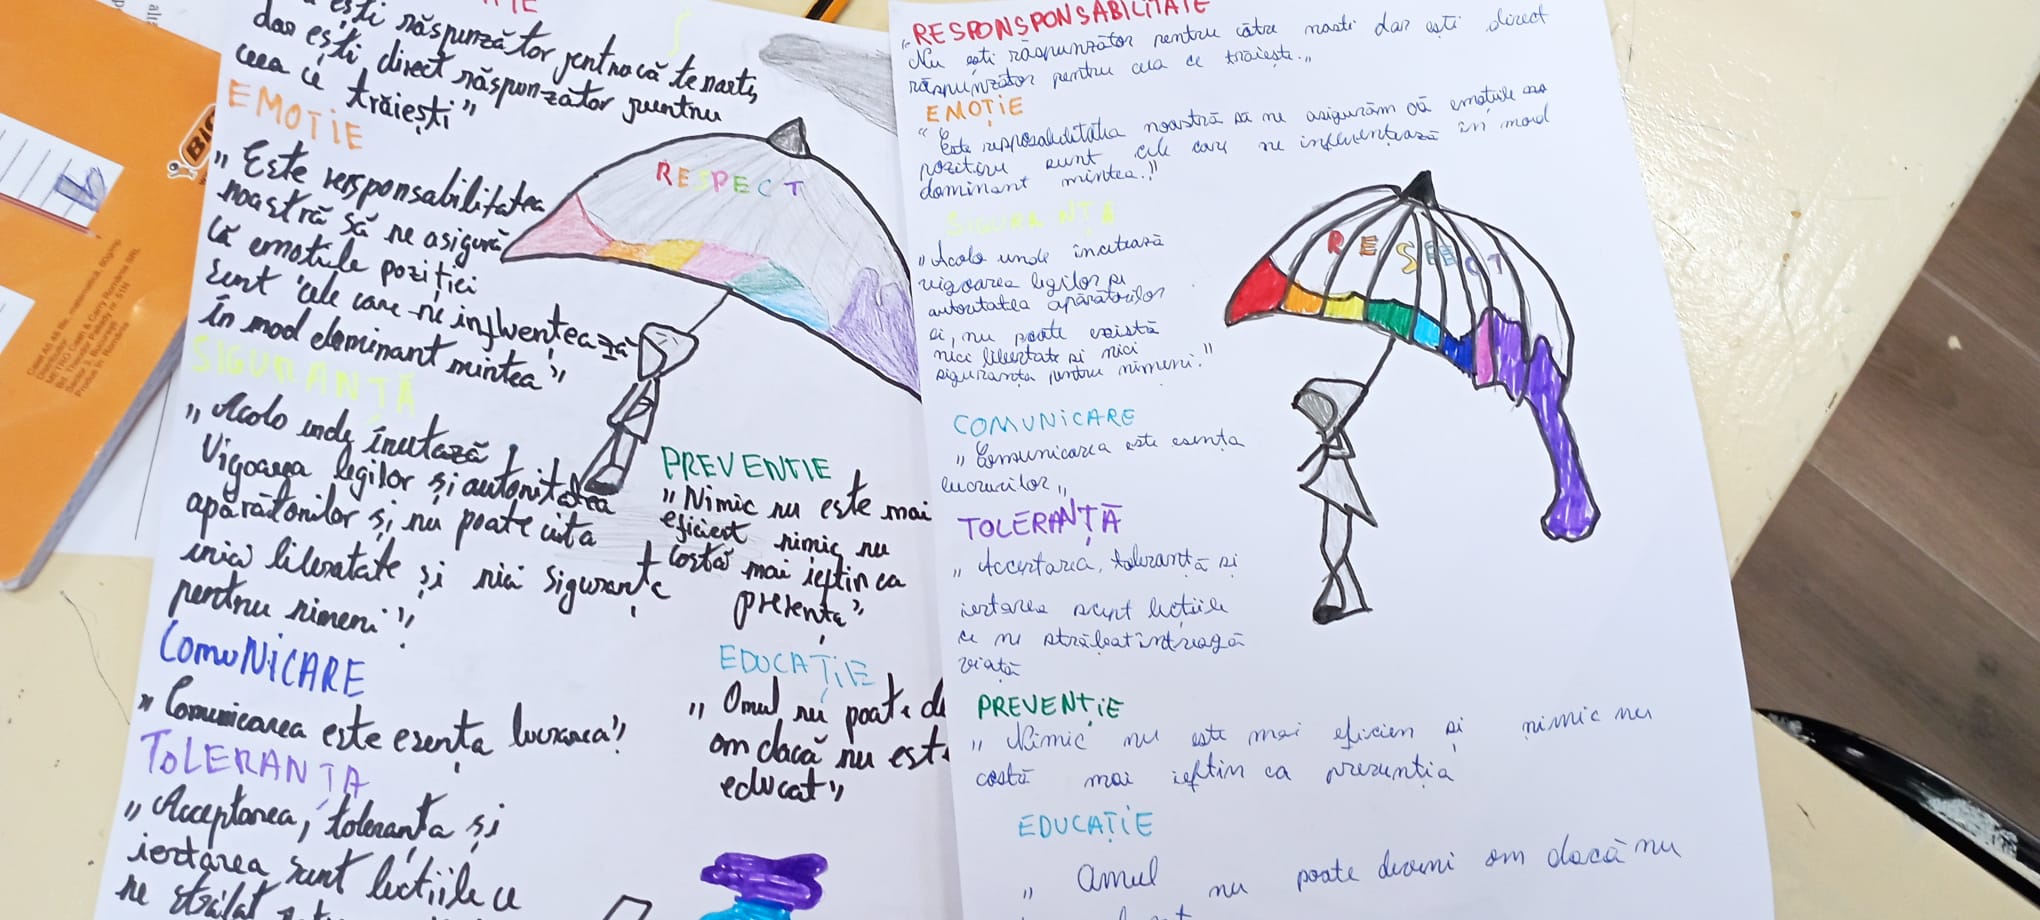 ești răspunzător pentru că te naști,
dar ești direct răspunzător puntru
ceea ce trăiești”
EMOTIE
„Este responsabilitatea
noastră să ne asigură
că emotiile poziției
sunt cele care ne influențează
în mod dominant mintea”
SIGURANȚĂ
„Acolo unde încetază
Vigoarea legilor și autoritatea
apărătorilor și, nu poate
nici libertate și nici siguranțe
pentru nimeni”
COMUNICARE
„Comunicarea este esența
TOLERANȚA
„Acceptarea, toleranța și
iertarea sunt lectiile ce
ne
RESPECT
PREVENTIE
„Nimic nu este mai
eficient nimic nu
costă mai ieftin ca
EDUCAȚIE
„Omul nu poate de
om dacă nu est
educat”
BIC
RESPONSPONSABILITATE
„Nu ești răspunzător pentru către nasti dar ești direct
răspunzător pentru ceea ce trăiește.„
EMOȚIE
“Este noastră să ne asigurăm că emotiile
pozitive sunt cele care ne influențează în mod
dominant mintea.”
SIGURANȚĂ
„Acolo unde încetează
vigoarea legilor și
autoritatea apărătorilor
și, nu poate există
nici libertate și nici
siguranța pentru nimeni.”
COMUNICARE
„Comunicarea este esența
lucrurilor„
TOLERANȚĂ
„Acceptarea, toleranță și
iertarea sunt lecțiile
ce ne străbat întreagă
viață
PREVENȚIE
„Nimic nu este mai eficien și nimic nu
costă mai ieftin ca
EDUCAȚIE
„Omul nu poate deveni om dacă nu
RESPECT